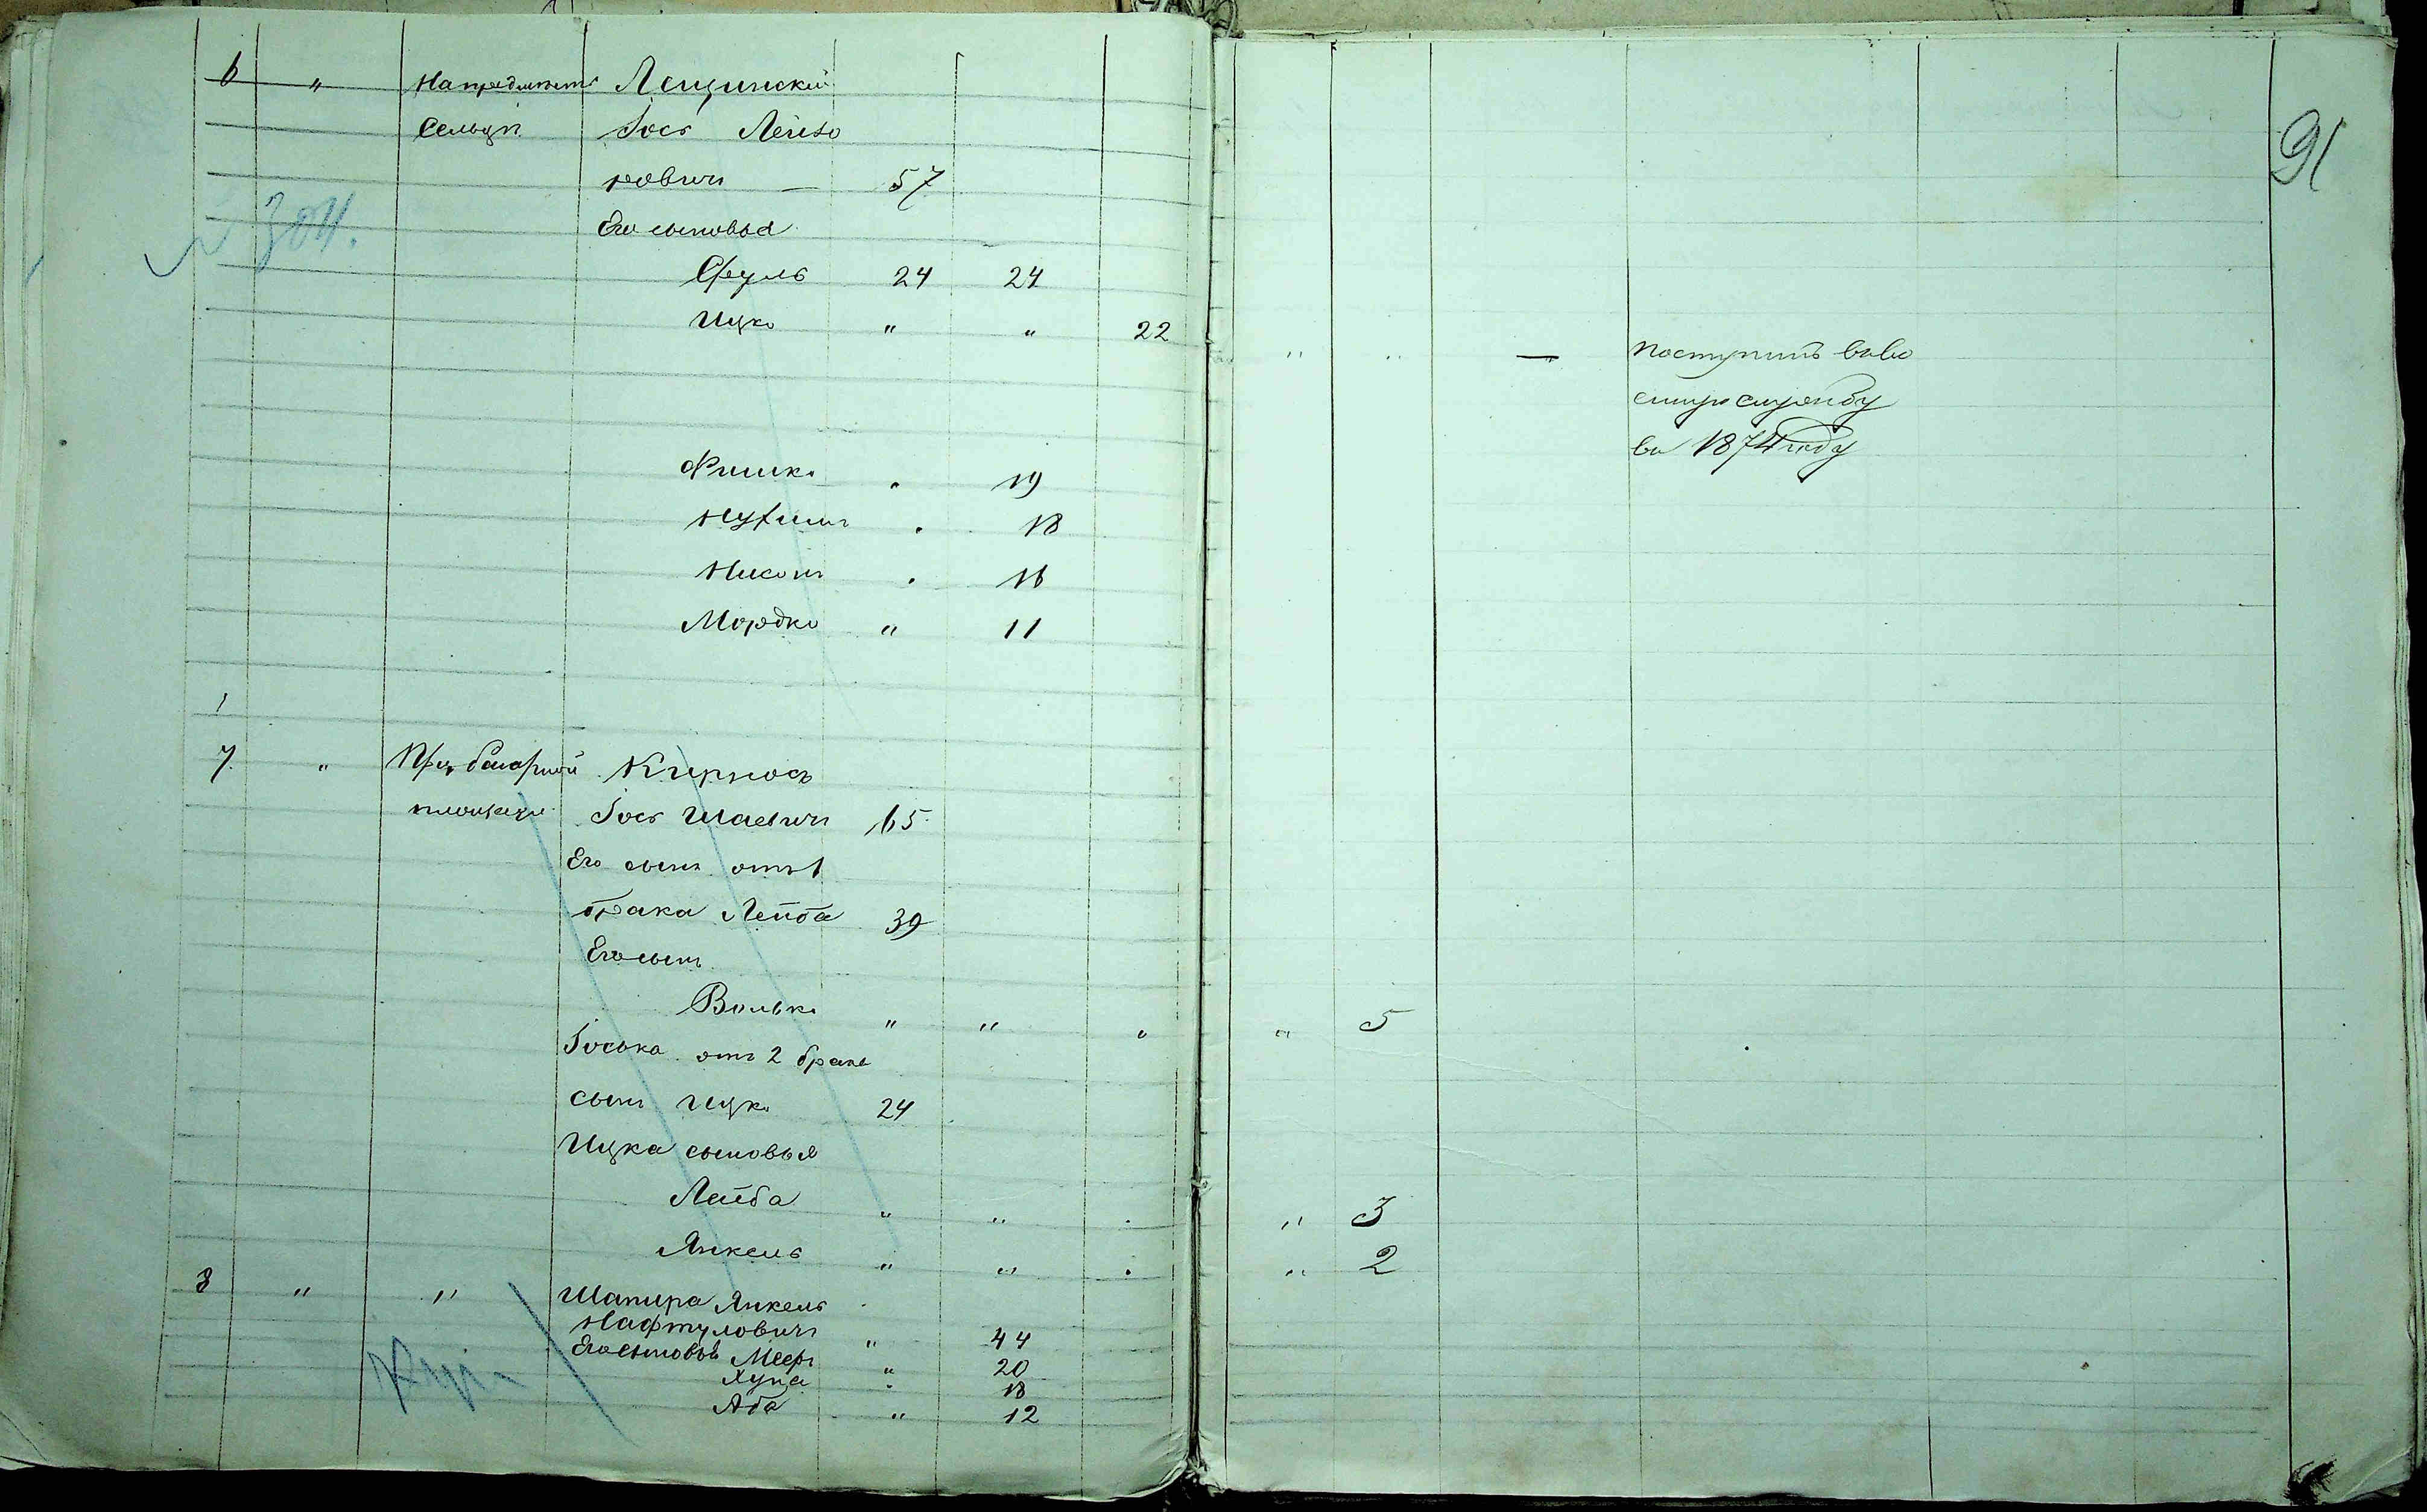 6 " На предместьи Лещинский
Сельцы Іось Лейзо
ровичъ — 57
№ 304. Его сыновья
Сруль 24 24
Ицко " " 22 " " — поступилъ въ во
енную службу
въ 1874 году
Фишко " 19
Нухимъ " 18
Нисонъ " 16
Мордко " 11
7. " При базарной Кирносъ
площади Іось Шаевичъ 65
Его сынъ отъ 1
брака Лейба 39
Его сынъ
Волько " " " " 5
Іоська отъ 2 брака
сынъ Ицко 24
Ицка сыновья
Лейба " " " " 3
Янкель " " " " 2
8 " " Шапира Янкель
Нафтуловичъ " 44
Его сыновья Мееръ " 20
18
Аба " 12
91